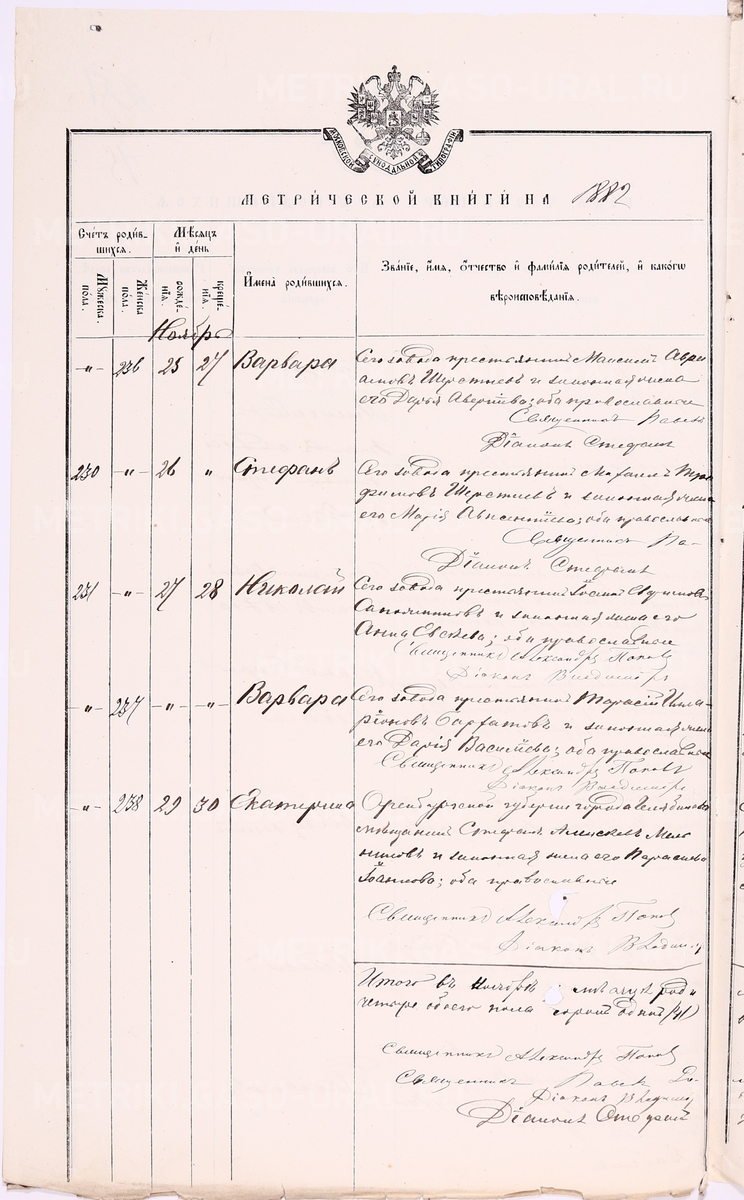 МЕТРИЧЕСКОЙ КНИГИ НА 1882
Счетъ родив-
шихся.
Мѣсяцъ
и день
Мужеска
пола.
Женска
пола.
рожде-
нія.
креще-
нія.
Имена родившихся.
Званіе, имя, отчество и фамилія родителей, и какого
вѣроисповѣданія.
Ноябрь
-"- 236 25 27 Варвара
Сего завода крестьянинъ
и законная жена
его Дарія оба православные
Священникъ Павелъ
Діаконъ Стефанъ
230 -"- 26 " Стефанъ
Сего завода крестьянинъ Михаилъ Тро-
фимовъ и законная жена
его Марія оба православные
Священникъ Па-
Діаконъ Стефанъ
231 -"- 27 28 Николай
Сего завода крестьянинъ
и законная жена его
Анна оба православные
Священникъ Александръ Поповъ
Діаконъ Владиміръ
-"- 237 -"- -"- Варвара
Сего завода крестьянинъ Тарасій Илла-
ріоновъ и законная жена
его Дарія Васильева; оба православные
Священникъ Александръ Поповъ
Діаконъ Владиміръ
-"- 238 29 30 Екатерина
Оренбургской губерніи города Челябинска
мѣщанинъ Стефанъ Алексѣевъ Мель
никовъ и законная жена его Параскева
Іоаннова; оба православные
Священникъ Александръ Поповъ
Діаконъ Владимір
Итого въ Ноябрѣ мѣсяцѣ роди
обоего пола сорокъ одинъ (41)
Священникъ Александръ Поповъ
Священникъ Павелъ
Діаконъ Владимір
Діаконъ Стефанъ